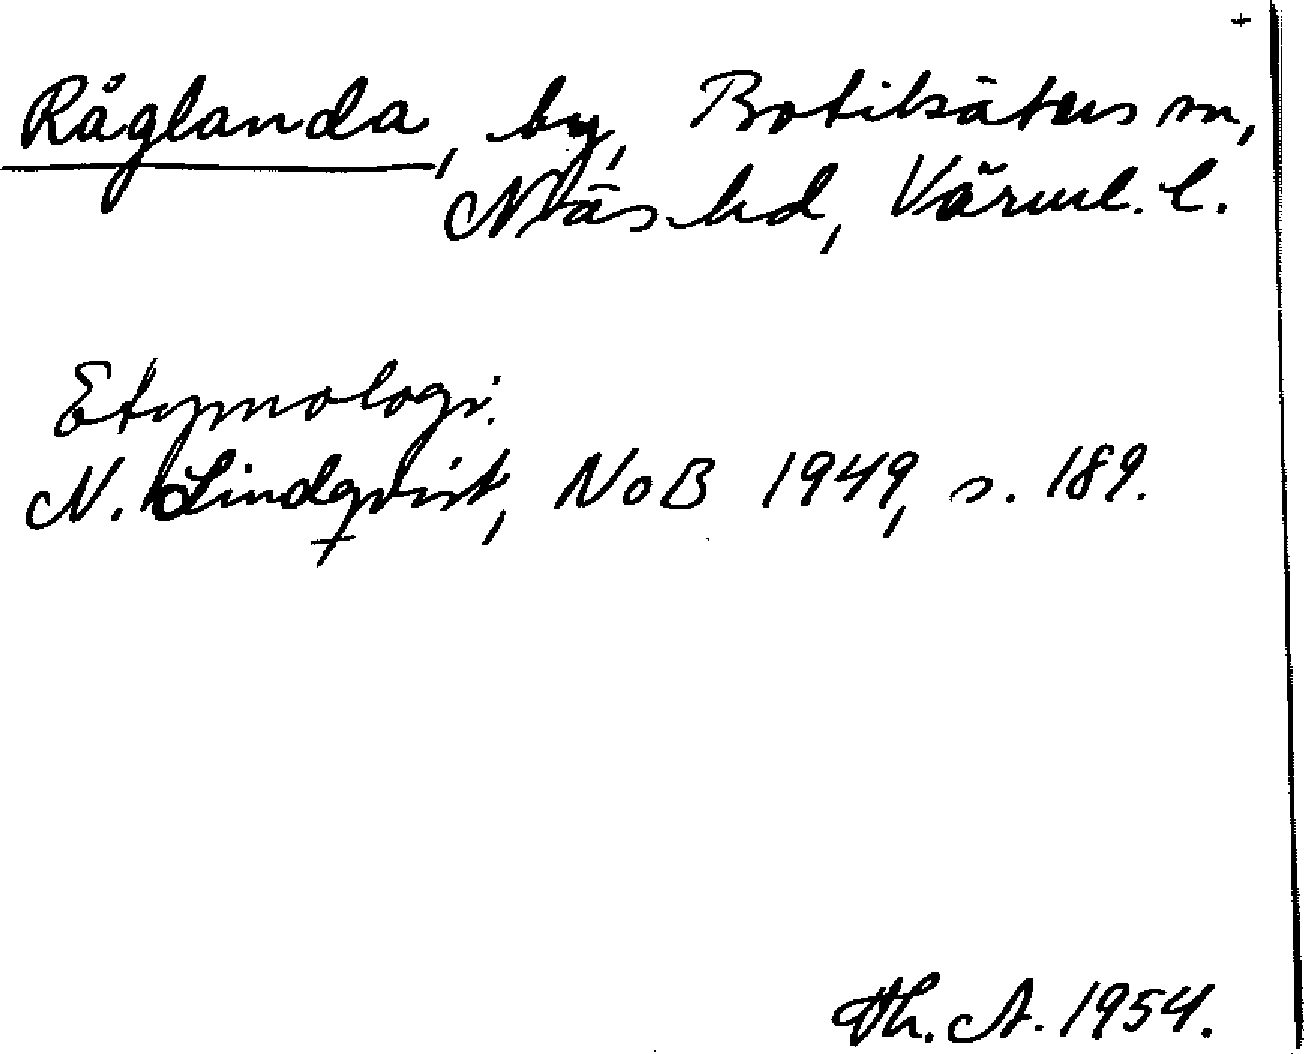 +
Råglanda, by, Botilsäters sn,
Näs hd, Värml. l.
Etymologi.
N. Lindqvist, NoB 1949, s. 189.
Th. A. 1954.